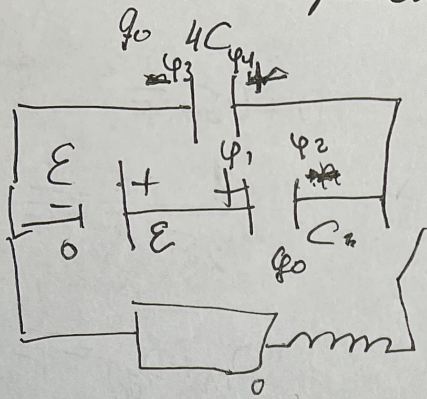 q₀ 4C
φ₃ φ₄
ℰ + + φ₁ φ₂
−
0 ℰ C
q₀
0